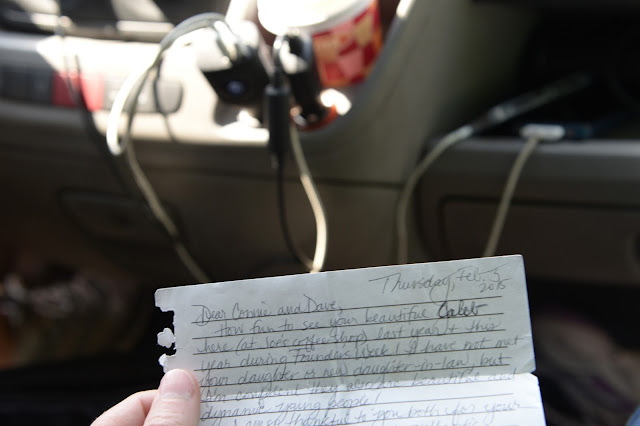 Thursday, Feb. 5
2015
Dear Connie and Dave,
How fun to see your beautiful Caleb
here (at Joe's coffee shop) last year & this
year during Founders Week! I have not met
your daughter or new daughter-in-law but
confident they also are beautiful and
dynamic young people!
thankful to you both for your